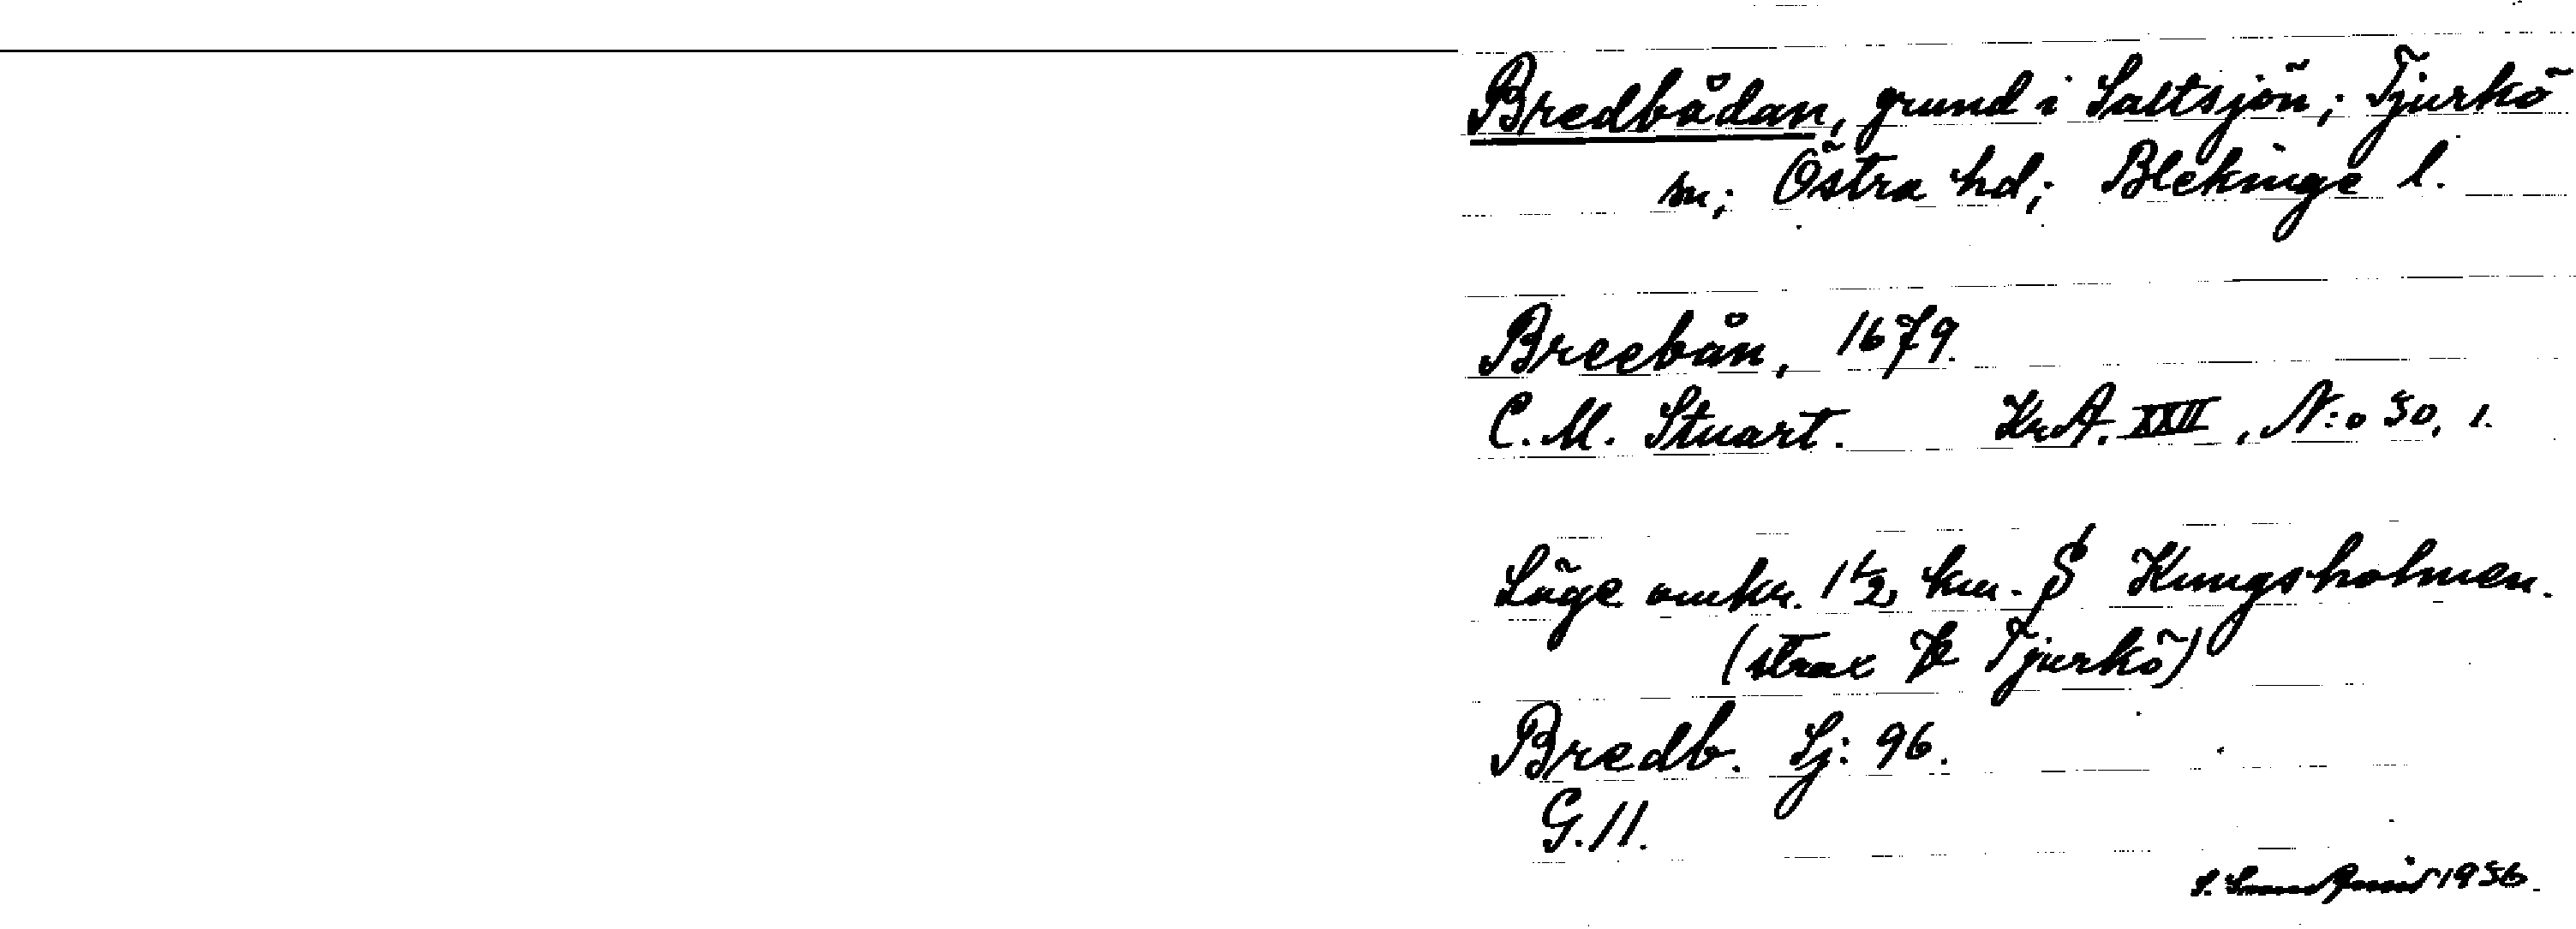 Bredbådan, grund i Saltsjön; Tjurkö
sn; Östra hd; Blekinge l.
Breebån, 1679.
C. M. Stuart. KrA. XXII, N:o 50, 1.
Läge omkr. 1 1/2 km. S Kungsholmen.
(strax V Tjurkö)
Bredb. Sj: 96.
G. 11.
1956.